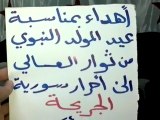 أهداء بمناسبة
عيد المولد النبوي
من ثوار العسالي
الى أحرار سورية
الجريحة